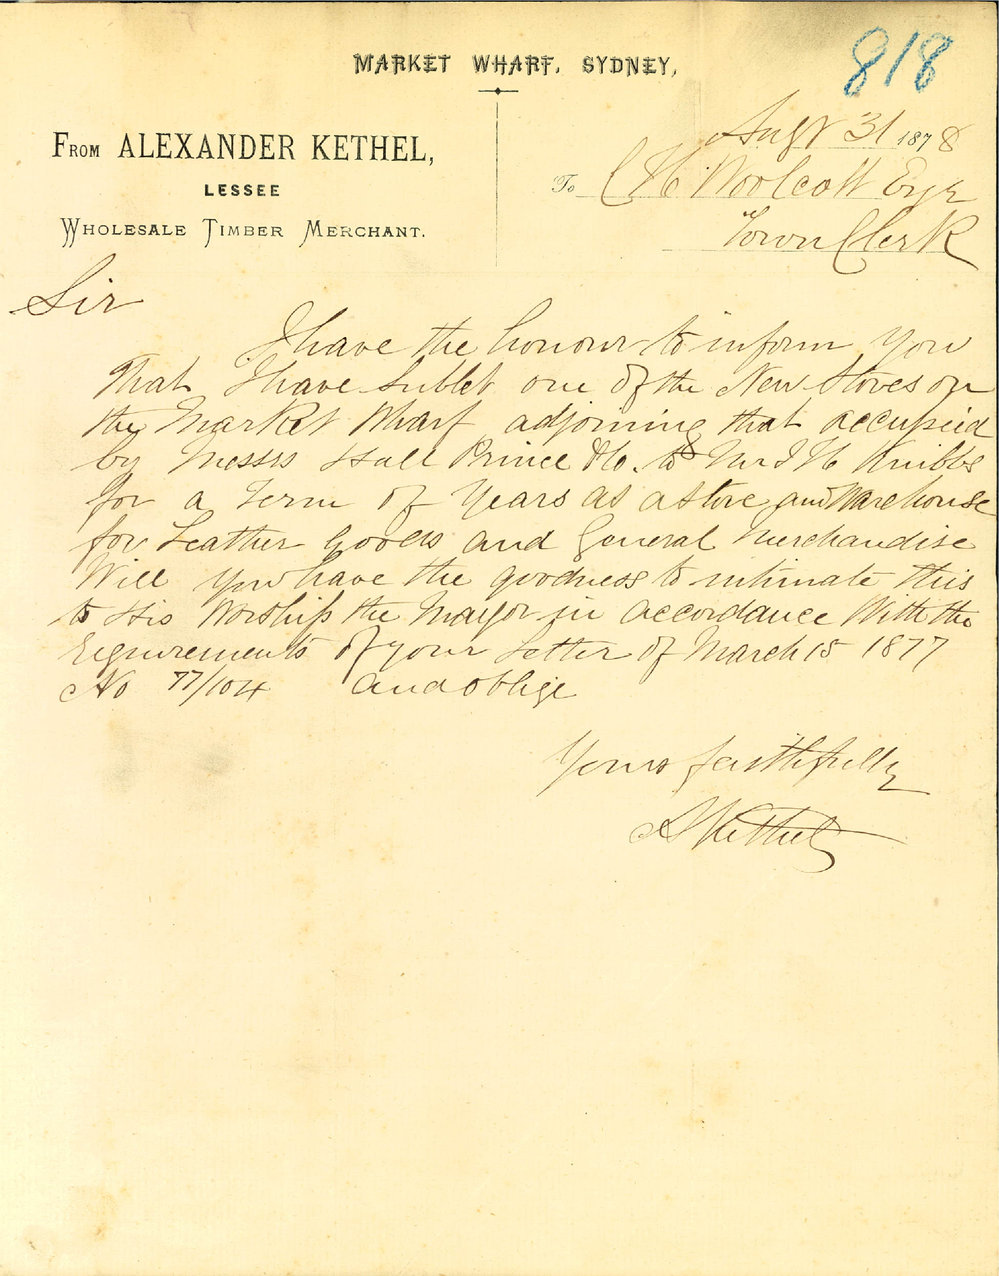 818
MARKET WHARF, SYDNEY,
FROM ALEXANDER KETHEL,
LESSEE
WHOLESALE TIMBER MERCHANT.
Augt 31 1878
To C H Woolcott Esqr
Town Clerk
Sir
I have the honour to inform you
that I have sublet one of the New Stores on
the Market Wharf adjoining that occupied
by Messrs Hall Prince & Co. to Mr J H Knibbs
for a Term of Years as a store and Warehouse
for Leather Goods and General Merchandise
Will you have the goodness to intimate this
to His Worship the Mayor in accordance With the
requirements of your Letter of March 15 1877
No 77/104 and oblige
Yours faithfully
A Kethel